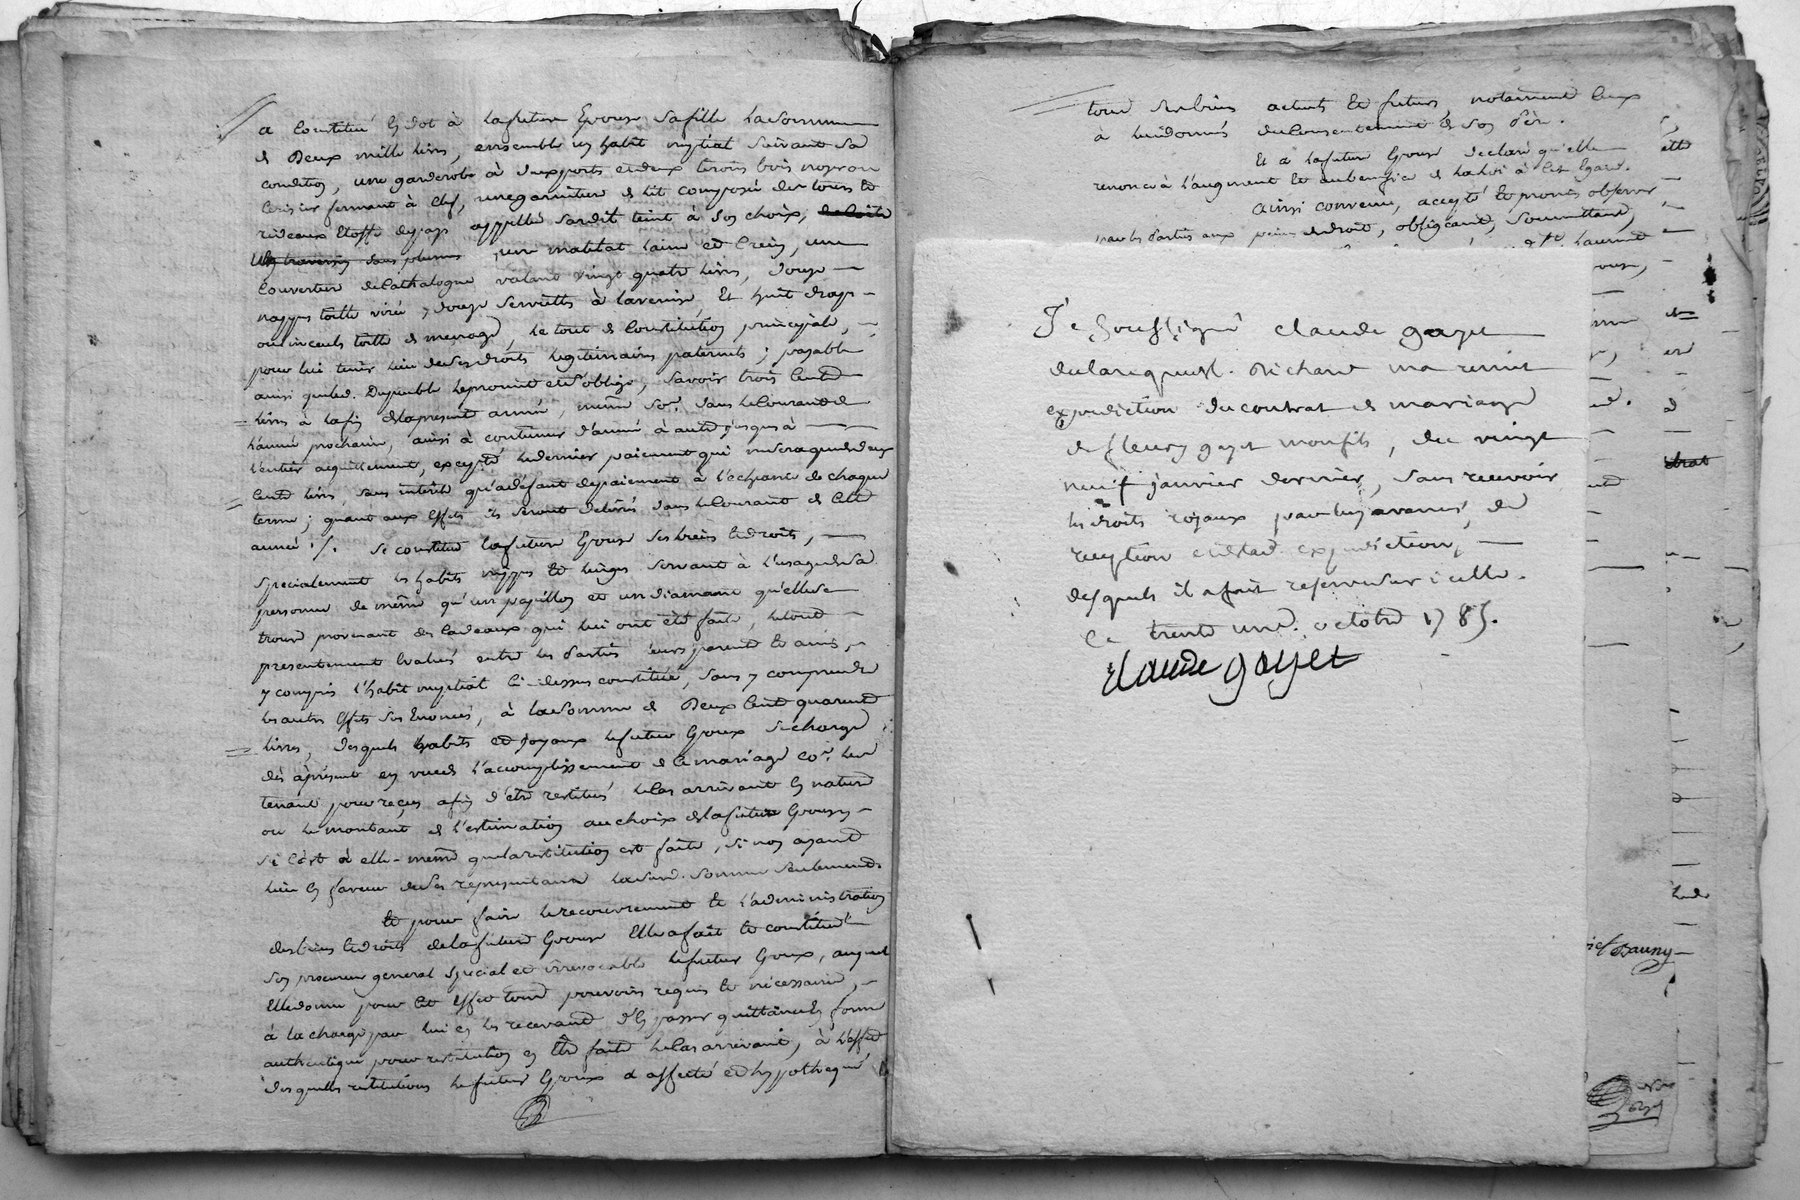 a constitué en dot à la future Epouse sa fille la somme
de Deux mille livres, ensemble un habit nuptial suivant sa
condition, une garderobe à deux ports et deux tiroirs bois noyer ou
cerisier fermant à clef, une garniture de lit composée de tours et
rideaux Etoffe du pays appellée Sardit teint à son choix,
une matelat laine et Crein, une
couverture de Cathalogne valant vingt quatre livres, douze
nappes toille virée, douze serviettes à la venise, Et huit draps
ou linceuls toille de menage, le tout de Constitution principale,
pour lui tenir lieu de ses droits legitimaires paternels ; payable
ainsi que led. Dupeuble le promet et s'oblige, savoir trois Cents
livres à la fin de la presente année, même so.e dans le Courant de
l'année prochaine, ainsi à continuer d'année à autre jusques à
l'entier acquittement, excepté le dernier paiement qui ne sera que de deux
Cents livres, sans interêts qu'à défaut de paiement à l'echeance de chaque
terme ; quant aux Effets ils seront delivrés dans le Courant de cette
année ./. Se constitue la future Epouse ses biens et droits,
specialement les habits nippes et linges servant à l'usage de sa
personne de même qu'un papillon et un diamant qu'elle se
trouve provenant des Cadeaux qui lui ont été faits, le tout
presentement Evalué entre les Parties leurs parents et amis,
y compris l'habit nuptial ci-dessus constitué, sans y comprendre
les autres Effets sus Enoncés, à la somme de Deux Cents quarante
livres, desquels habits et joyaux le futur Epoux se charge
dès àprésent en vue de l'accomplissement de ce mariage co.e les
tenant pour reçus afin d'être restitués le Cas arrivant en nature
ou le montant de l'estimation au choix de la future Epouse,
si c'est à elle-même que la restitution est faite, si non ayant
lieu en faveur de ses representans lad. somme seulement.
Et pour faire le recouvrement et l'administration
des biens et droits de la future Epouse Elle a fait et constitué
son procureur general special et irrevocable le futur Epoux, auquel
Elle donne pour cet effet tous pouvoirs requis et nécessaires,
à la charge par lui en les recevant d'en passer quittance en forme
authentique pour restitution en être faite le Cas arrivant, à l'effet
desquelles restitutions le futur Epoux a affecté et hypothequé
tous ses biens actuels et futurs, notamment Ceux
à lui donnés du Consentement de son Père.
Et a la future Epouse declaré qu'elle
renonce à l'augment et au benefice de la loi à cet Egard.
ainsi convenu, accepté et promis observer
par les Parties aux peines de droit, obligeant, Soumettant,
Je Soussigné claude gayet
declare que sr. Richard ma remis
expediction du contrat de mariage
de fleury gayet mon fils, du vingt
neuf janvier dernier, sans recevoir
les droits royaux par luy avancés, de
reception et de lad. expediction,
desquels il a fait reserve sur icelle.
Ce trente une octobre 1785.
claude gayet